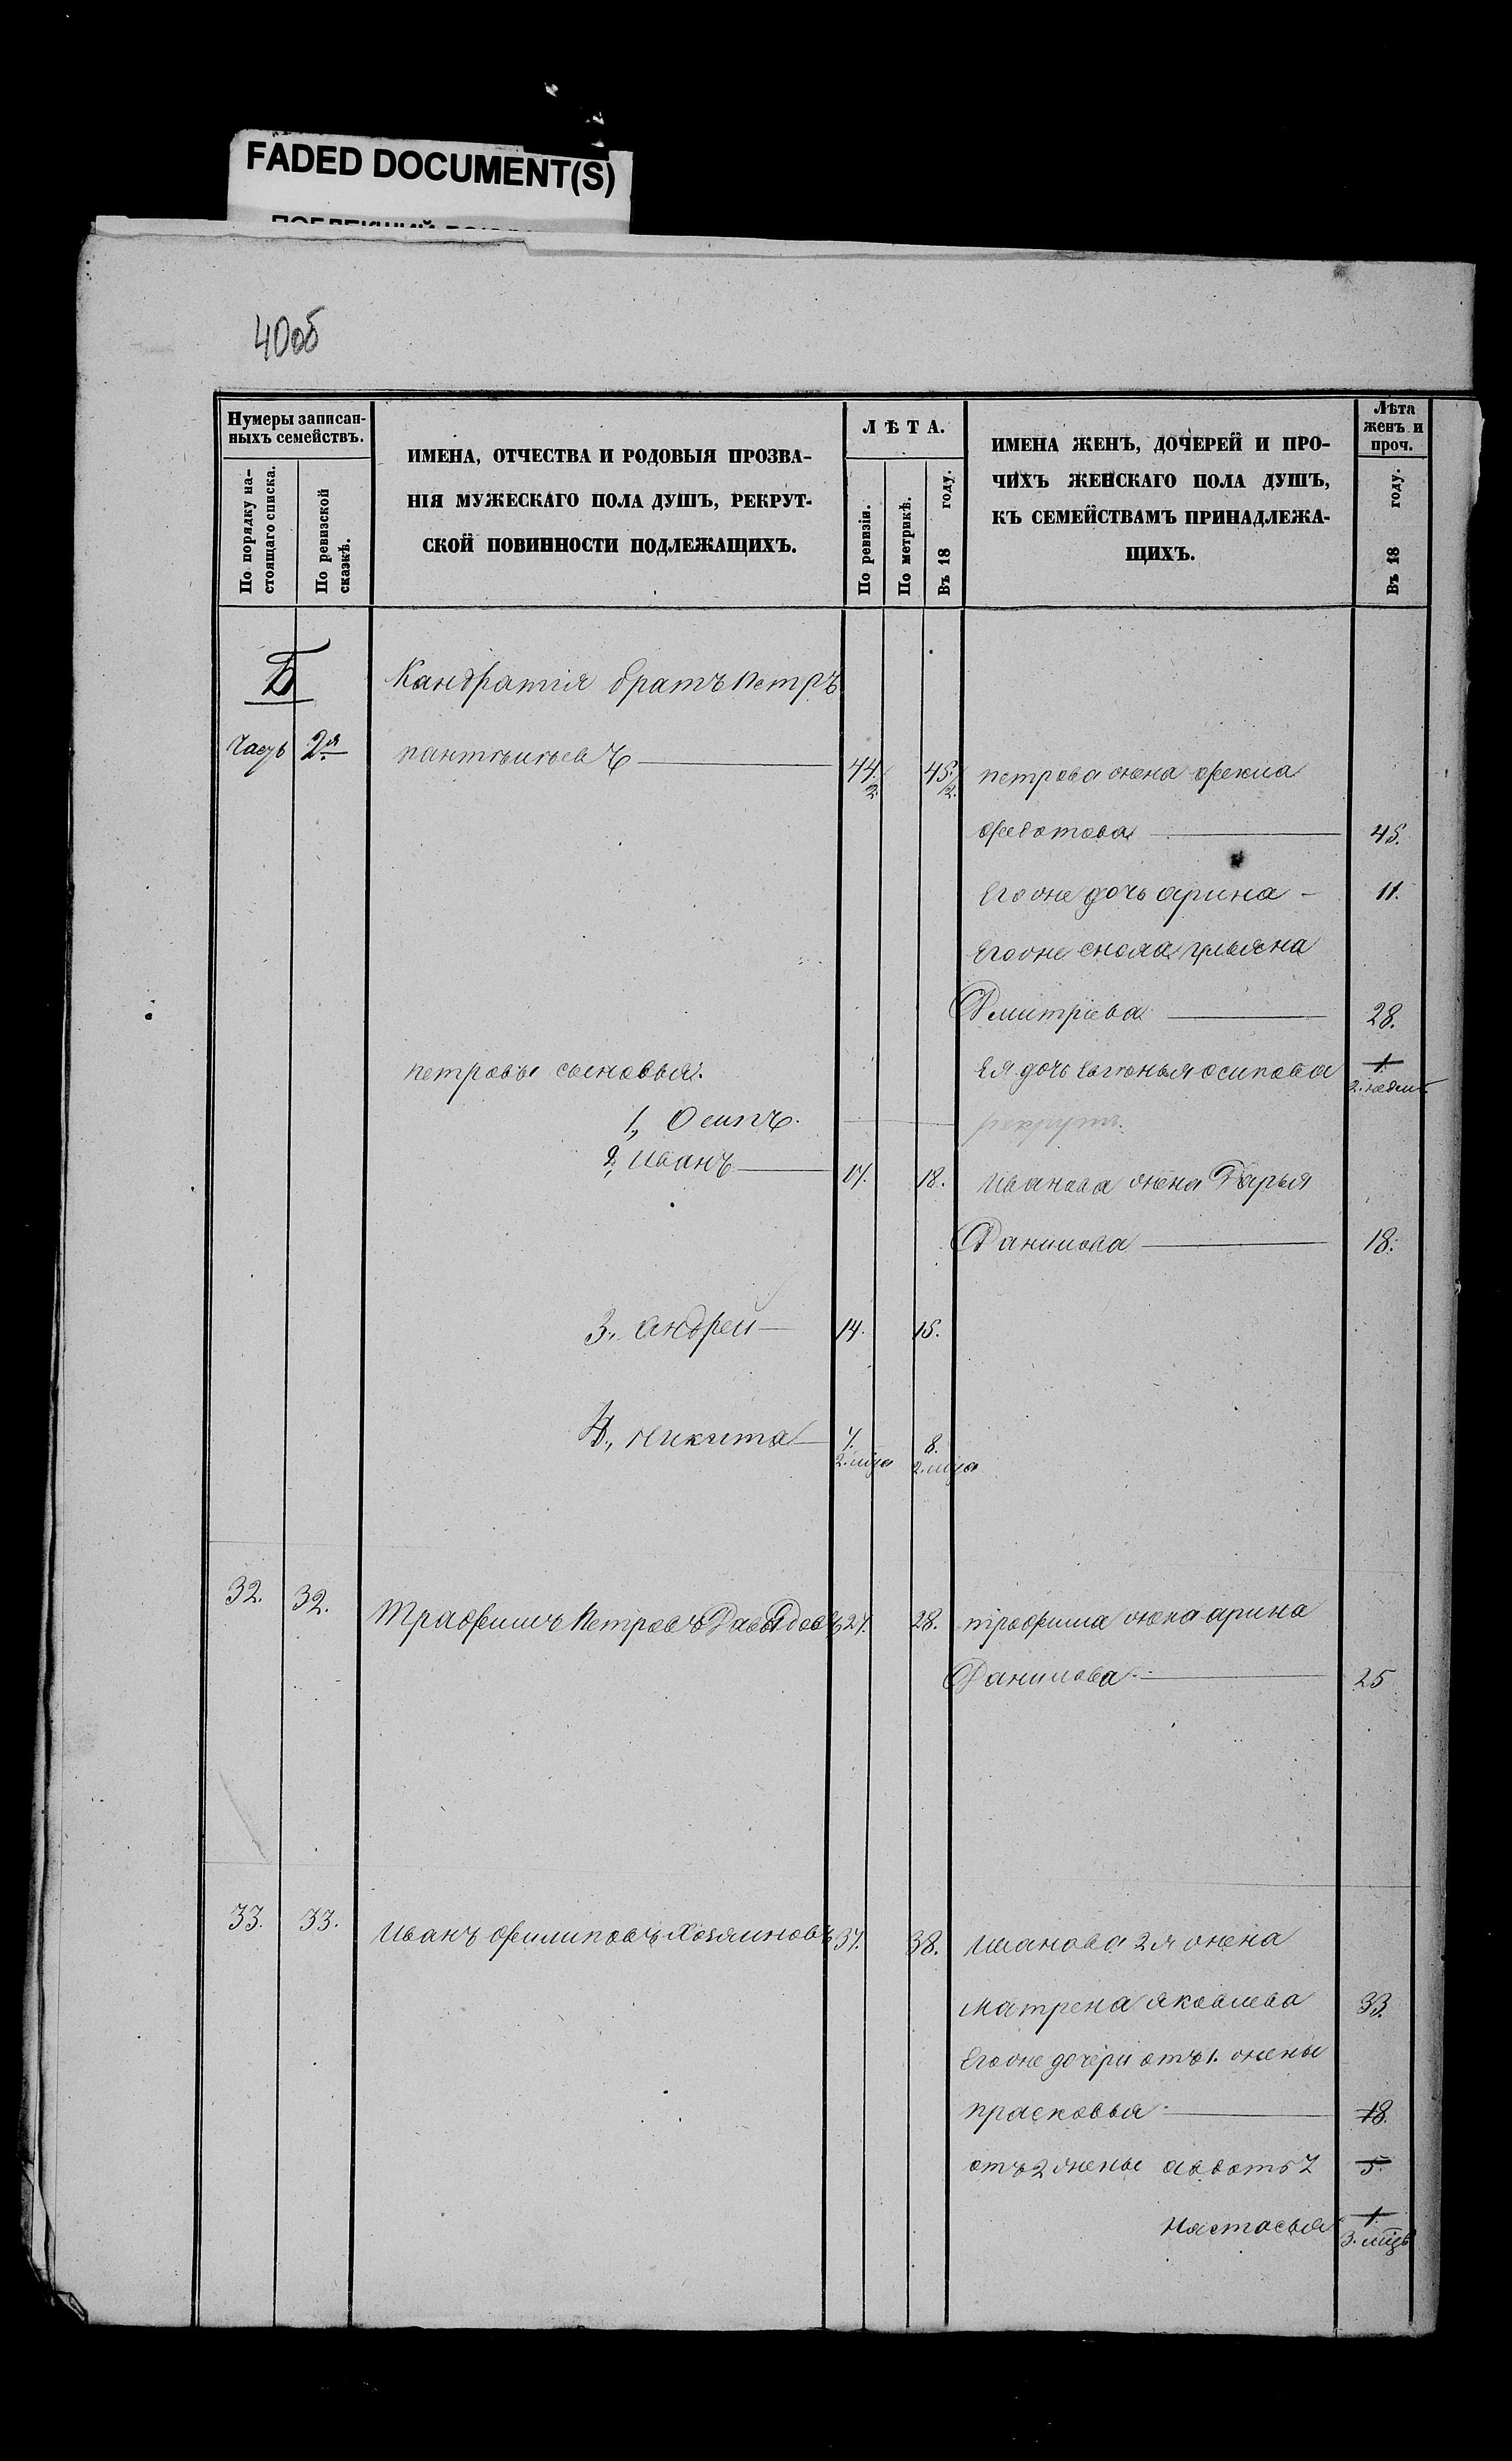 FADED DOCUMENT(S)
40об
Нумеры записан-
ныхъ семействъ.
По порядку на-
стоящаго списка.
По ревизской
сказкѣ.
ИМЕНА, ОТЧЕСТВА И РОДОВЫЯ ПРОЗВА-
НІЯ МУЖЕСКАГО ПОЛА ДУШЪ, РЕКРУТ-
СКОЙ ПОВИННОСТИ ПОДЛЕЖАЩИХЪ.
ЛѢТА.
По ревизіи.
По метрикѣ.
Въ 18 году.
ИМЕНА ЖЕНЪ, ДОЧЕРЕЙ И ПРО-
ЧИХЪ ЖЕНСКАГО ПОЛА ДУШЪ,
КЪ СЕМЕЙСТВАМЪ ПРИНАДЛЕЖА-
ЩИХЪ.
Лѣта
женъ и
проч.
Въ 18 году.
Б Кандратія братъ петръ
Часть 2я пантѣлѣевъ 44. 2. 45. 2. петрова жена фекла
федотова 45.
Егоже дочь арина 11.
Егоже сноха ульяна
Дмитріева 28.
петровы сыновья. Ея дочь Евгенья осипова 1.
1, Осипъ. рекрутъ.
2, иванъ 17. 18. иванова жена Дарья
Данилова 18.
3., андреи 14. 15.
4., никита 7. 8.
2. мца 2. мца
32. 32. трафимъ петровъ Давыдовъ 27. 28. трафима жена арина
Данилова 25
33. 33. иванъ филиповъ Хозяиновъ 37. 38. иванова 2я жена
матрена яковлева 33.
Егоже дочери отъ 1. жены
прасковья 18.
отъ 2 жены авдотья 5.
настасья 1.
3. мцъ